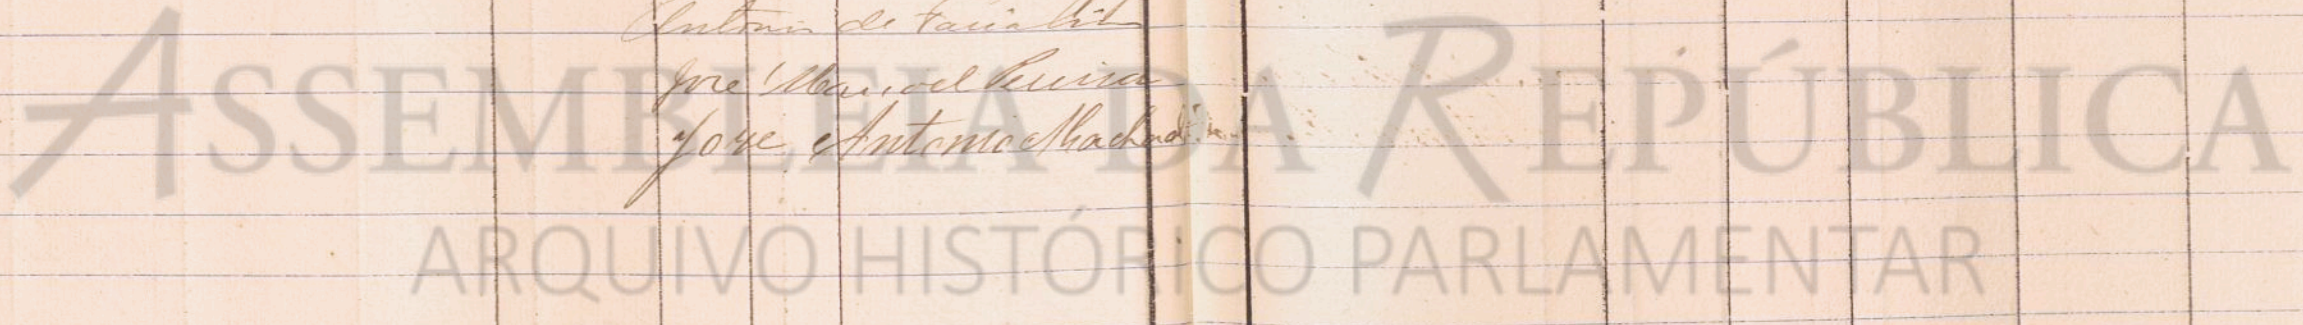 Antonio de Faria
José Manoel Pereira
José Antonio Machado
ASSEMBLEIA DA REPÚBLICA
ARQUIVO HISTÓRICO PARLAMENTAR